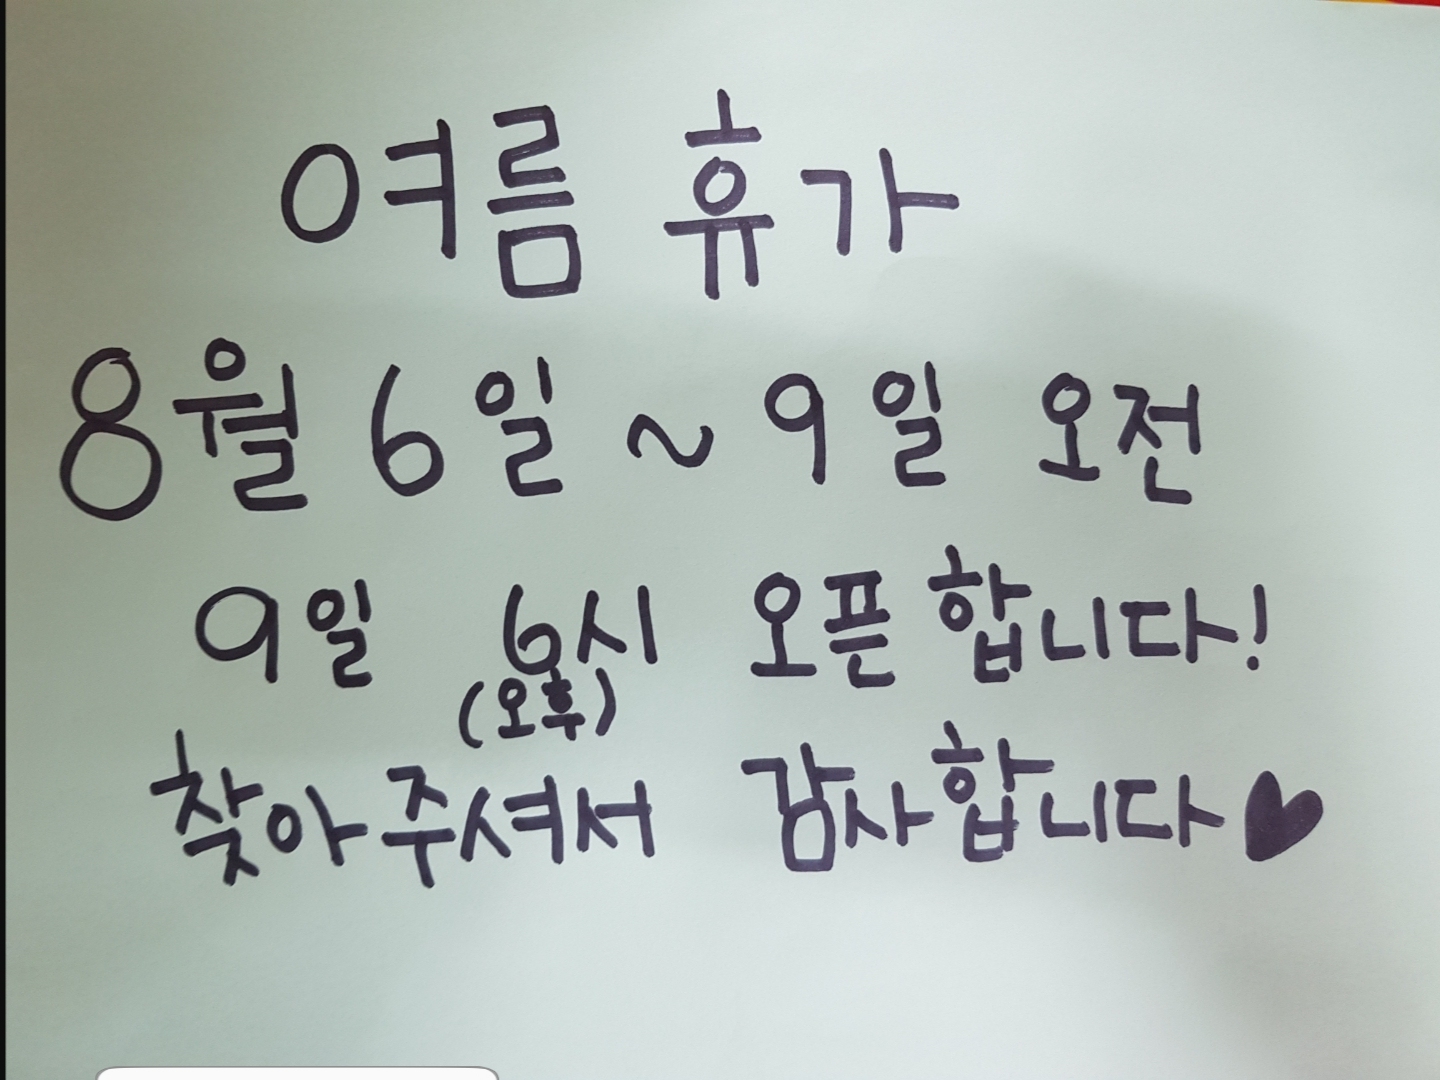 여름 휴가
8월 6일 ~ 9일 오전
9일 6시 오픈합니다!
(오후)
찾아주셔서 감사합니다♥